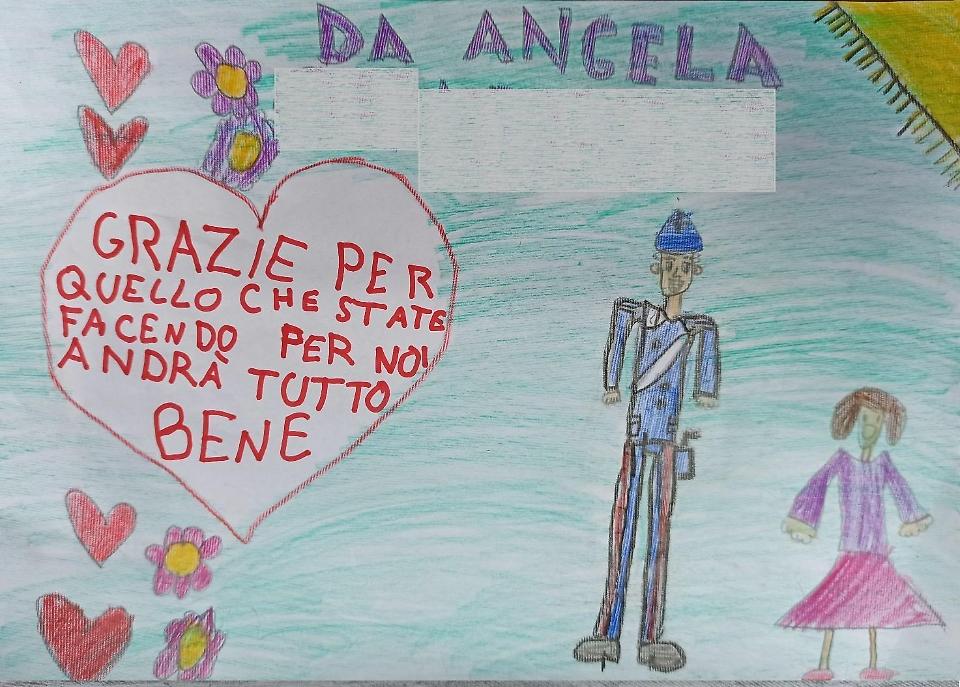 DA ANGELA
GRAZIE PER
QUELLO CHE STATE
FACENDO PER NOI
ANDRÀ TUTTO
BENE